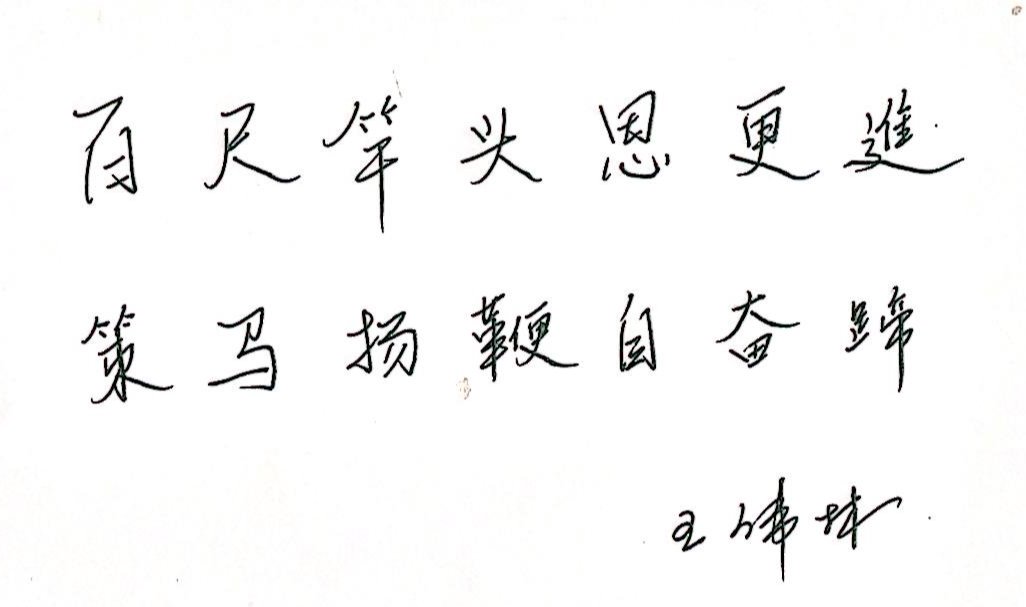 百尺竿头恩更進
策马扬鞭自奋蹄
王